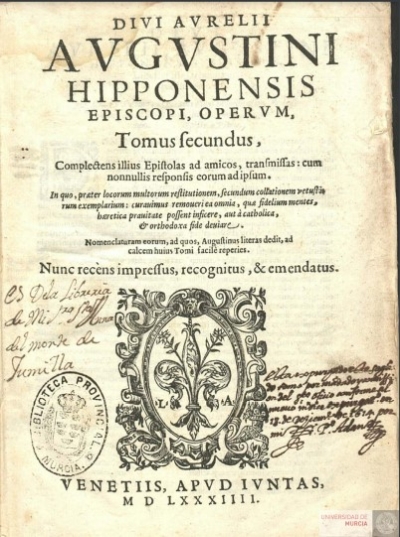 DIVI AVRELII
AVGVSTINI
HIPPONENSIS
EPISCOPI, OPERVM,
Tomus secundus,
Complectens illius Epistolas ad amicos, transmissas: cum
nonnullis responsis eorum ad ipsum.
In quo, præter locorum multorum restitutionem, secundum collationem vetustio
rum exemplarium: curauimus remoueri ea omnia, quæ fidelium mentes,
hæretica prauitate possent inficere, aut à catholica,
& orthodoxa fide deuiare.
Nomenclaturam eorum, ad quos, Augustinus literas dedit, ad
calcem huius Tomi facilè reperies.
Nunc recèns impressus, recognitus, & emendatus.
Es De la libreria
de
del monte de
Jumilla
L A
BIBLIOTECA PROVINCIAL
MURCIA
VENETIIS, APVD IVNTAS,
M D LXXXIIII.
UNIVERSIDAD DE
MURCIA